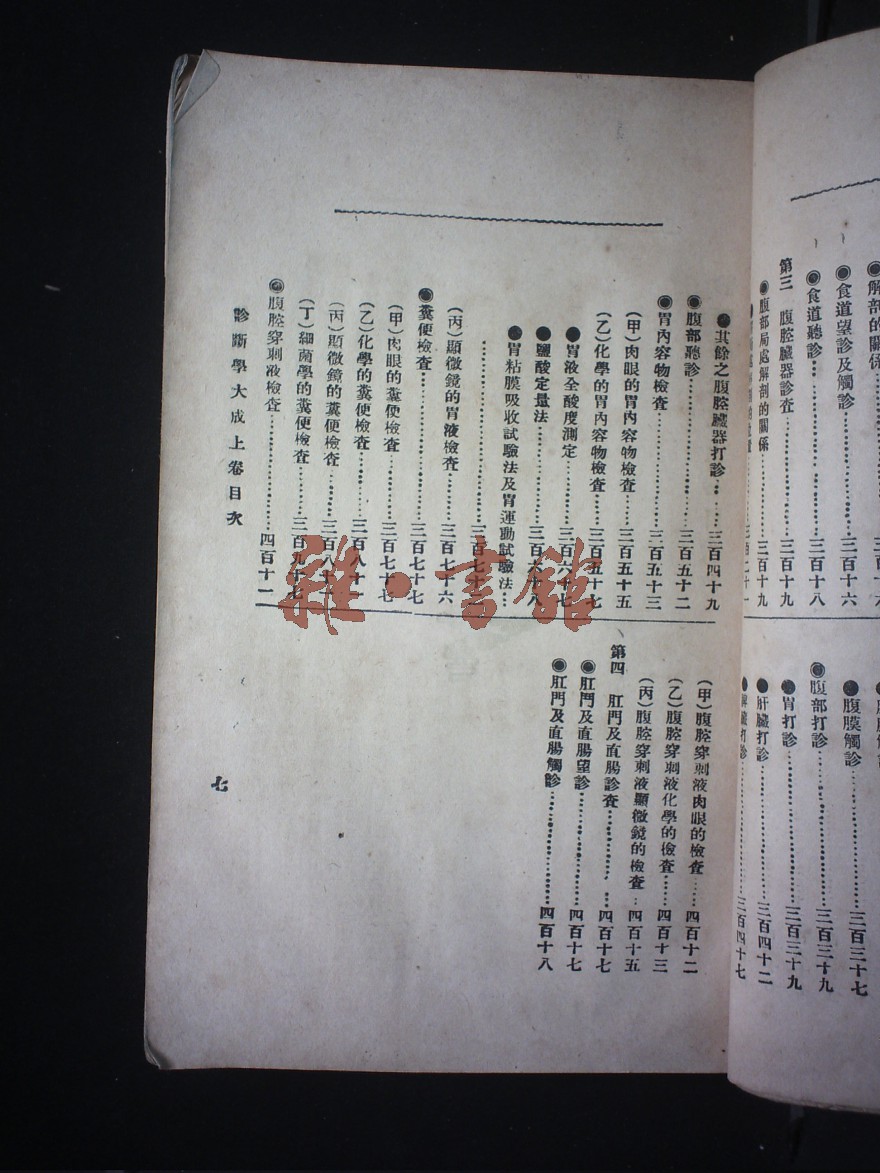 食道望診及觸診……三百十六
食道聽診……三百十八
第三　腹腔臟器診査……三百十九
腹部局處解剖的關係……三百十九
腹膜觸診……三百三十七
腹部打診……三百三十九
胃打診……三百三十九
肝臟打診……三百四十二
脾臟打診……三百四十七
其餘之腹腔臟器打診……三百四十九
腹部聽診……三百五十二
胃內容物檢査……三百五十三
(甲)肉眼的胃內容物檢査……三百五十五
(乙)化學的胃內容物檢査……三百五十七
胃液全酸度測定……三百六十七
鹽酸定量法……三百六十八
胃粘膜吸收試驗法及胃運動試驗法……
(丙)顯微鏡的胃液檢査……三百七十六
糞便檢査……三百七十七
(甲)肉眼的糞便檢査……三百七十七
(乙)化學的糞便檢査……三百八十一
(丙)顯微鏡的糞便檢査……三百八十
(丁)細菌學的糞便檢査……三百九十七
腹腔穿刺液檢査……四百十二
(甲)腹腔穿刺液肉眼的檢査……四百十二
(乙)腹腔穿刺液化學的檢査……四百十三
(丙)腹腔穿刺液顯微鏡的檢査…四百十五
第四　肛門及直腸診査……四百十七
肛門及直腸望診……四百十七
肛門及直腸觸診……四百十八
診斷學大成上卷目次
七
雜·書館